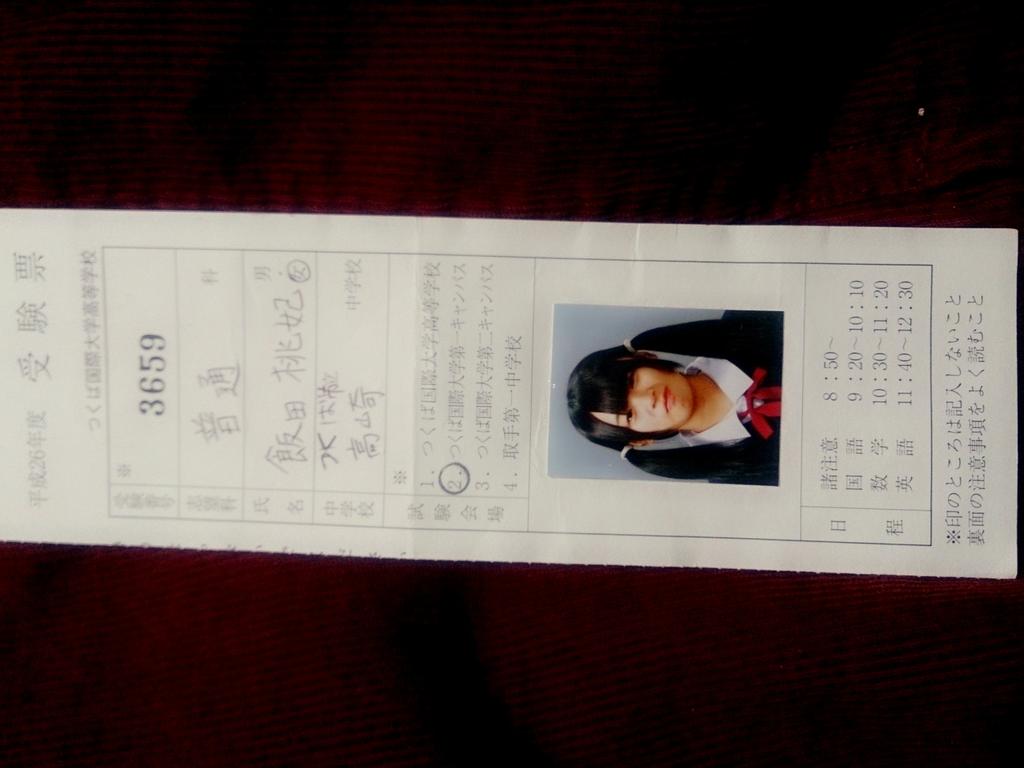 平成26年度 受験票
つくば国際大学高等学校
受験番号 ※ 3659
志望科 普通 科
氏名 飯田 桃妃 男・女
中学校 つくば市立 高崎 中学校
試験会場 ※
1. つくば国際大学高等学校
2. つくば国際大学第一キャンパス
3. つくば国際大学第二キャンパス
4. 取手第一中学校
日程
諸注意 8:50~
国語 9:20~10:10
数学 10:30~11:20
英語 11:40~12:30
※印のところは記入しないこと
裏面の注意事項をよく読むこと